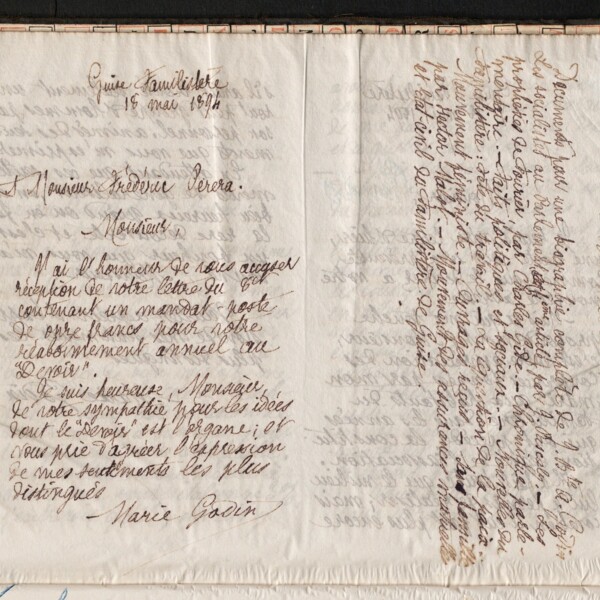 Guise Familistère
18 mai 1894
A Monsieur Frédéric Pérera.
Monsieur,
J'ai l'honneur de vous accuser
réception de votre lettre du 8 ct
contenant un mandat-poste
de onze francs pour votre
réabonnement annuel au
"Devoir".
Je suis heureuse, Monsieur,
de votre sympathie pour les idées
dont le "Devoir" est l'organe; et
vous prie d'agréer l'expression
de mes sentiments les plus
distingués
Marie Godin
Documents pour une biographie complète de J. Bte A. Godin
Les socialistes au Parlement
prophéties de Fourier par Charles Gide. — Chronique parle-
mentaire. — Faits politiques et sociaux. — Nouvelles du
Familistère: — La question de la paix. —
Mouvement féministe. — Ouvrages reçus. — Sans famille
par Hector Malot. — Mouvement des assurances mutuelles
et état civil du Familistère de Guise.